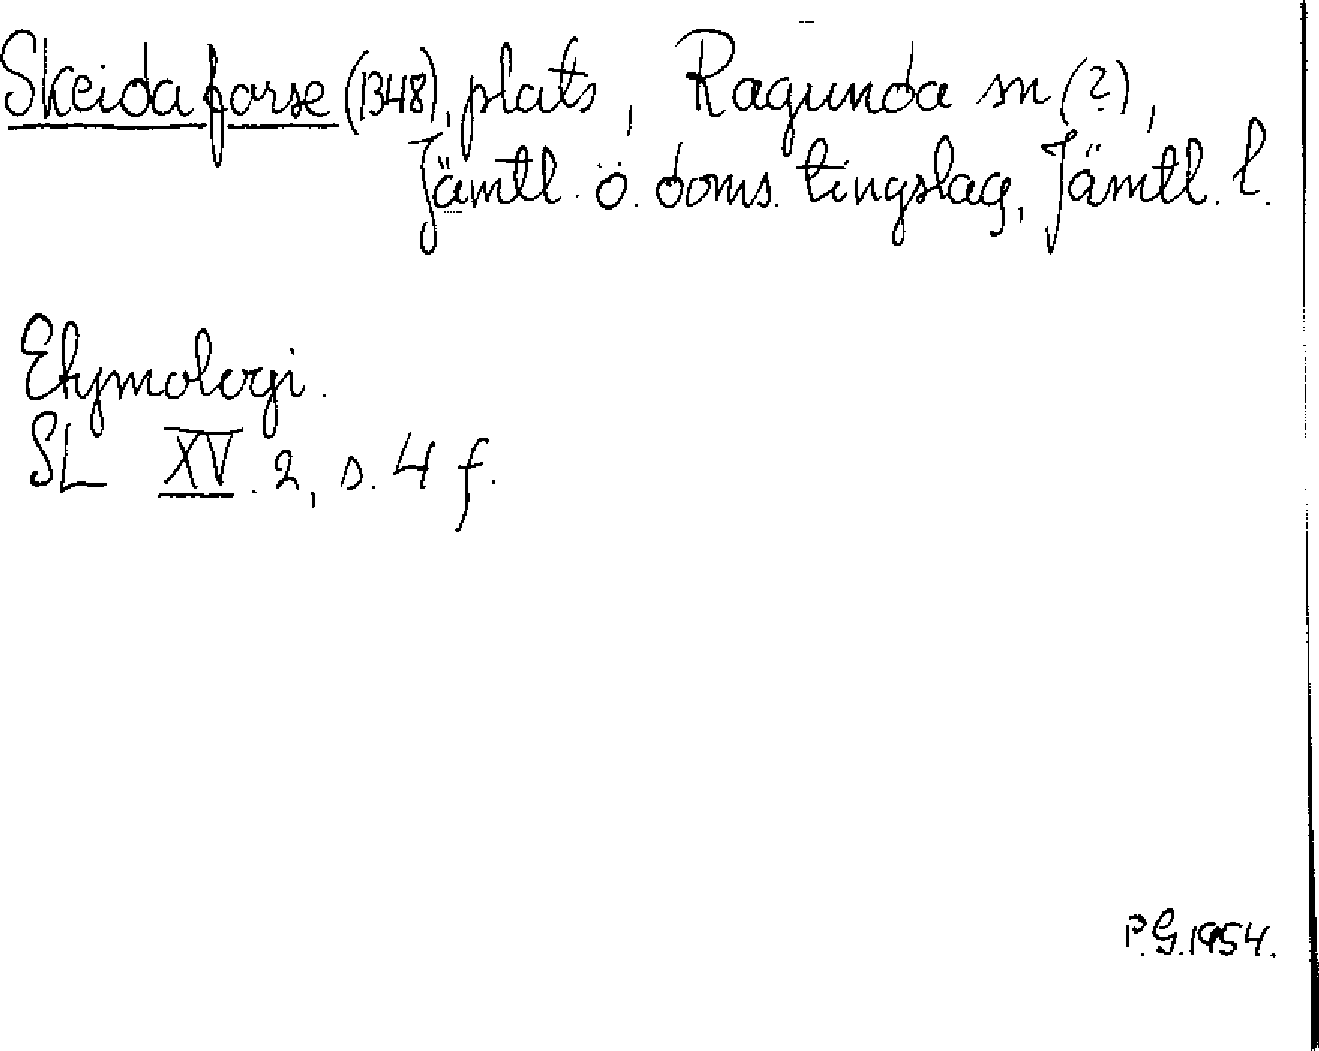 Skeida forse (1348), plats, Ragunda sn (?),
Jämtl. ö. doms. tingslag, Jämtl. l.
Etymologi.
SL XV. 2, s. 4 f.
P.G. 1954.